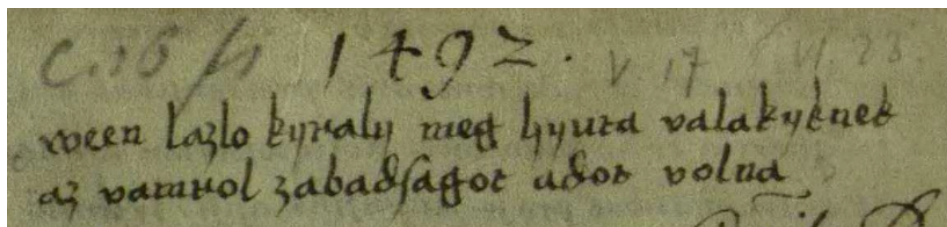 1492.
ween lazlo kyraly meg hyuta valakyknek
az vamrol zabadsagot adot volna